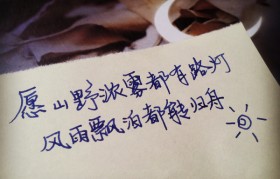 愿山野浓雾都有路灯
风雨飘泊都能归舟